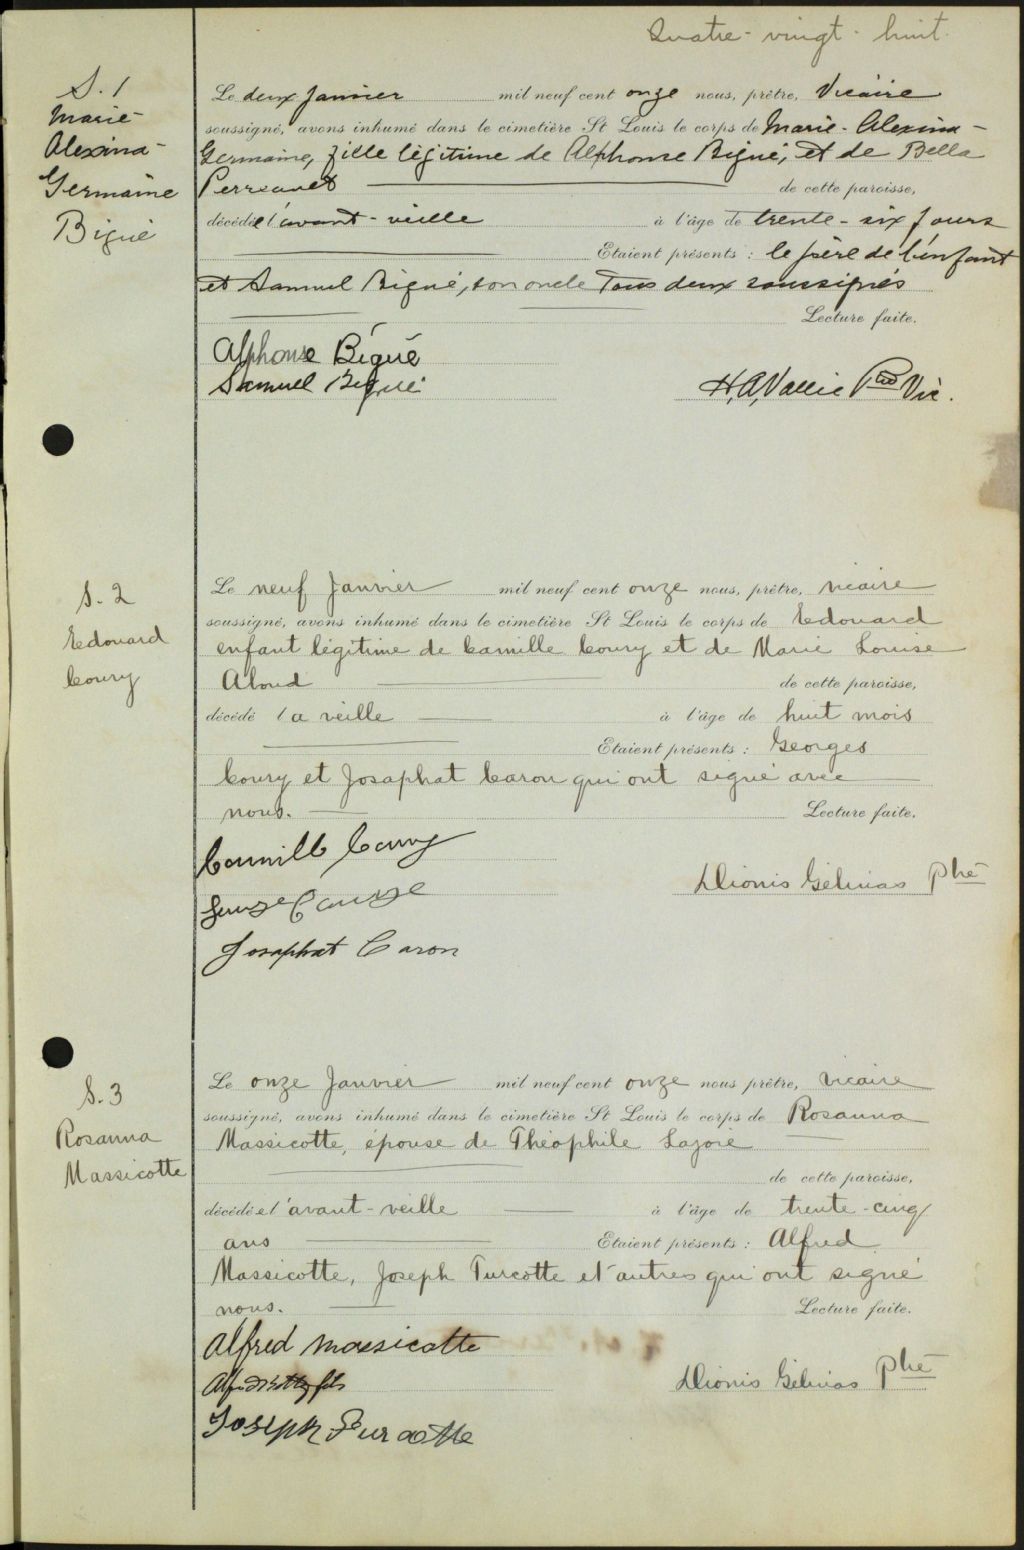 Quatre-vingt-huit.
S. 1
Marie-
Alexina-
Germaine
Bigué
Le deux Janvier mil neuf cent onze nous, prêtre, Vicaire
soussigné, avons inhumé dans le cimetière St Louis le corps de Marie-Alexina-
Germaine, fille légitime de Alphonse Bigué, et de Bella
Perreault de cette paroisse,
décédée l'avant-veille à l'âge de trente-six jours
Etaient présents : le père de l'enfant
et Samuel Bigué, son oncle Tous deux soussignés
Lecture faite.
Alphonse Bigué
Samuel Bigué
H. A. Vallée Ptre Vic.
S. 2
Edouard
Coury
Le neuf Janvier mil neuf cent onze nous, prêtre, vicaire
soussigné, avons inhumé dans le cimetière St Louis le corps de Edouard
enfant légitime de Camille Coury et de Marie Louise
Aboud de cette paroisse,
décédé la veille à l'âge de huit mois
Etaient présents : Georges
Coury et Josaphat Caron qui ont signé avec
nous. Lecture faite.
Camille Coury
Dionis Gélinas Ptre
Josaphat Caron
S. 3
Rosanna
Massicotte
Le onze Janvier mil neuf cent onze nous prêtre, vicaire
soussigné, avons inhumé dans le cimetière St Louis le corps de Rosanna
Massicotte, épouse de Théophile Lajoie
de cette paroisse,
décédée l'avant-veille à l'âge de trente-cinq
ans Etaient présents : Alfred
Massicotte, Joseph Turcotte et autres qui ont signé
nous. Lecture faite.
Alfred Massicotte
fils
Dionis Gélinas Ptre
Joseph Turcotte